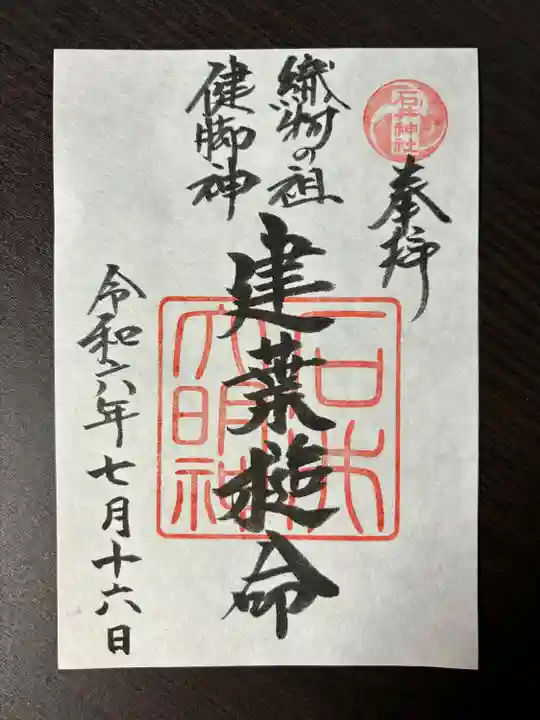 石井神社
奉拝
織物の祖
健脚神
建葉槌命
令和六年七月十六日
大明神